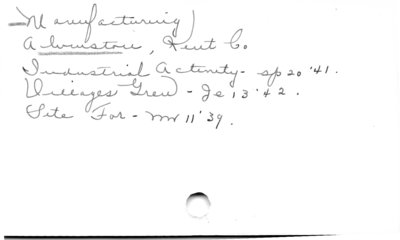 Manufacturing
Alvinston, Kent Co
Industrial Activity - sp 20 '41.
Villages Grew - Je 13 '42.
Site For - mr 11 '39.